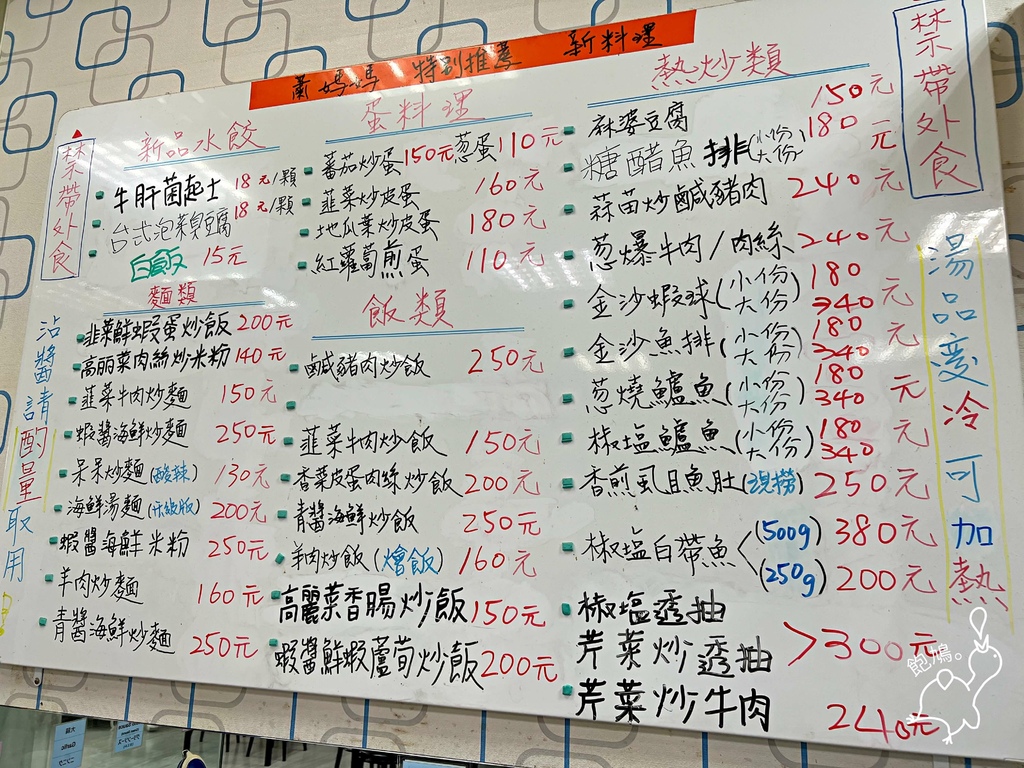 蕭媽媽 特別推薦 新料理
禁帶外食
新品水餃
牛肝菌起士 18元/顆
台式泡菜臭豆腐 18元/顆
白飯 15元
麵類
韭菜鮮蝦蛋炒飯 200元
高麗菜肉絲炒米粉 140元
韭菜牛肉炒麵 150元
蝦醬海鮮炒麵 250元
呆呆炒麵(酸辣) 130元
海鮮湯麵(升級版) 200元
蝦醬海鮮米粉 250元
羊肉炒麵 160元
青醬海鮮炒麵 250元
沾醬請酌量取用
蛋料理
番茄炒蛋 150元 葱蛋 110元
韭菜炒皮蛋 160元
地瓜葉炒皮蛋 180元
紅蘿蔔煎蛋 110元
飯類
鹹豬肉炒飯 250元
韭菜牛肉炒飯 150元
香菜皮蛋肉絲炒飯 200元
青醬海鮮炒飯 250元
羊肉炒飯(燴飯) 160元
高麗菜香腸炒飯 150元
蝦醬鮮蝦蘆荀炒飯 200元
熱炒類
麻婆豆腐 150元
糖醋魚排(小份 大份) 180元
蒜苗炒鹹豬肉 240元
葱爆牛肉/肉絲 240元
金沙蝦球(小份 大份) 180 340元
金沙魚排(小份 大份) 180 340元
葱燒鱸魚(小份 大份) 180 340元
椒塩鱸魚(小份 大份) 180 340元
香煎虱目魚肚(現撈) 250元
椒塩白帶魚 (500g) 380元
(250g) 200元
椒塩透抽
芹菜炒透抽 >300元
芹菜炒牛肉 240元
禁帶外食
湯品變冷可加熱
飽鳩。